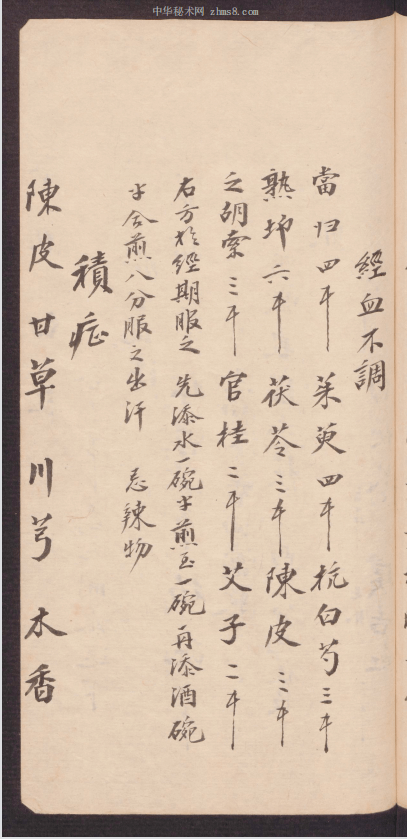 中华秘术网 zhms8.com
經血不調
當归四仟 茱萸四仟 杭白芍三仟
熟坤六仟 茯苓三仟 陳皮三仟
之胡索三仟 官桂二仟 艾子二仟
右方於經期服之 先添水一碗半煎至一碗再添酒碗
半合煎八分服之出汗 忌辣物
積症
陳皮甘草 川芎 木香